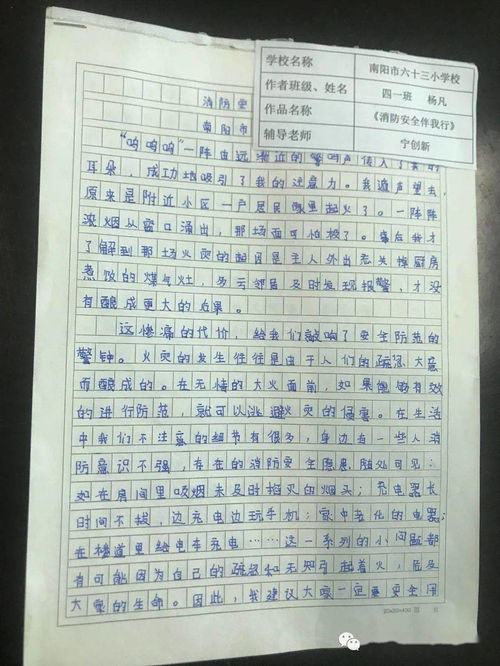 学校名称 南阳市六十三小学校
作者班级、姓名 四一班 杨凡
作品名称 《消防安全伴我行》
辅导老师 宁创新
消防安
南阳市
"呜呜呜"一阵由远渐近的警鸣声传入了我的
耳朵，成功地吸引了我的注意力。我遁声望去，
原来是附近小区一户居民家里起火了。一阵阵
浓烟从窗口涌出，那场面可怕极了。事后我才
了解到那场火灾的起因是主人外出忘关掉厨房
煮饭的煤气灶，多云邻居及时发现报警，才没
有酿成更大的后果。
这惨痛的代价，给我们敲响了安全防范的
警钟。火灾的发生往往是由于人们的疏忽大意
而酿成的。在无情的大火面前，如果能够有效
的进行防范，就可以逃避火灾的侵害。在生活
中我们不注意的细节有很多，身边有一些人消
防意识不强，存在的消防安全隐患，随处可见：
如在房间里吸烟未及时掐灭的烟头；充电器长
时间不拔，边充电边玩手机；家中老化的电器；
在楼道里给电车充电……这一系列的小问题都
有可能因为自己的疏忽和无知引起着火，危及
大家的生命。因此，我建议大家一定要安全用
20×20=400